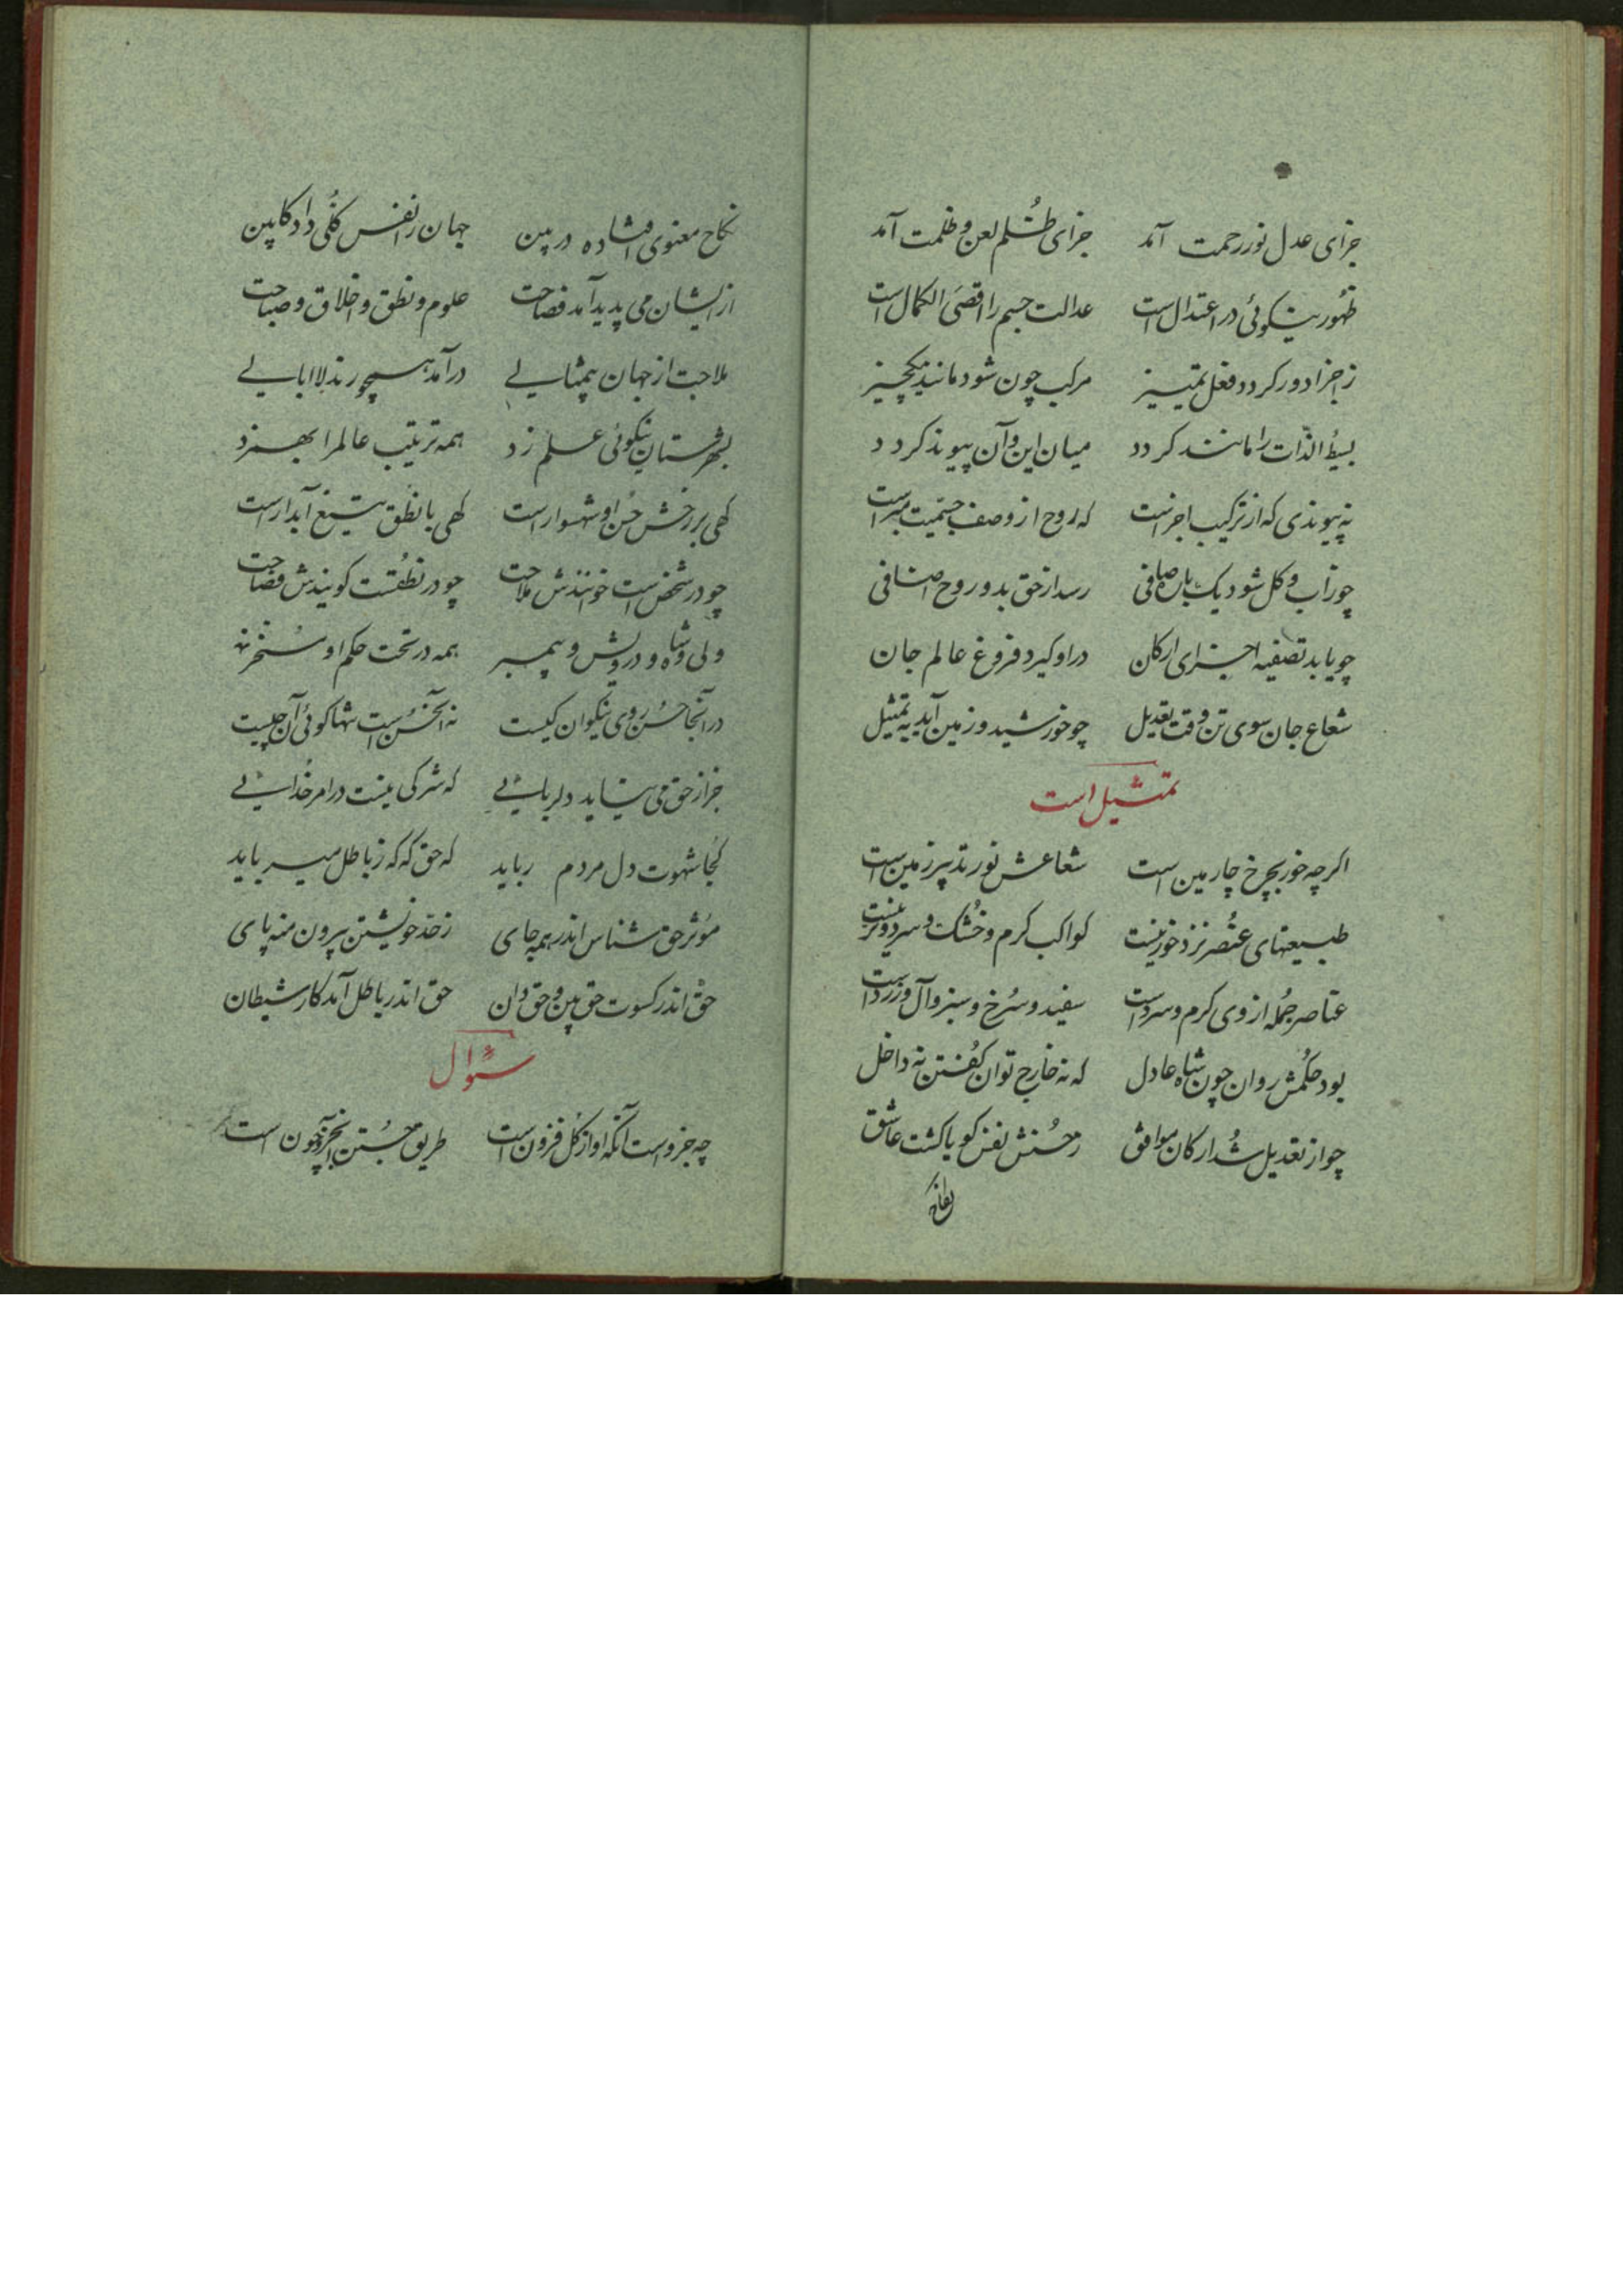 جزای عدل نور رحمت آمد جزای ظُلم لعن و ظلمت آمد
ظهور نیکوئی در اعتدال است عدالت جسم را اقصَی الکمال است
مرکب چون شود مانند یکچیز ز اجزا دور کردد فعل تمییز
بسیطُ الذّات را مانند کردد میان این و آن پیوند کردد
نه پیوندی که از ترکیب اجزاست که روح از وصف جسمیت مبراست
چو زاب و کل شود یکباره صافی رسد از حق بدو روح اضافی
چو یابد تصفیه اجزای ارکان در او کیرد فروغ عالم جان
شعاع جان سوی تن وقت تعدیل چو خورشید و زمین آید به تمثیل
تمثیل است
اکرچه خور بچرخ چارمین است شعاعش نور تدبیر زمین است
طبیعتهای عنُصر نزد خور نیست کواکب کرم و خُشک و سرد و تر نیست
عناصر جُمله از وی کرم و سرد است سفید و سُرخ و سبز و آل و زرد است
بود حکُمش روان چون شاه عادل که نه خارج توان کُفتن نه داخل
چو از تعدیل شُد ارکان موافق ز حُسنش نفس کویا کشت عاشق
نکاح
نکاح معنوی افتاده در بین جهان را نفس کلُی داد کابین
از ایشان می پدید آمد فصاحت علوم و نطق و اخلاق و صباحت
ملاحت از جهان بیمثالی درآمد همچو رند لاابالی
بشهرستان نیکوئی علم زد همه ترتیب عالم را بهم زد
کهی بر رخش حُسن او شهسوار است کهی با نطق تیغ آبدار است
چو در شخص است خوانندش ملاحت چو در نطُقست کویندش فصاحت
ولی و شاه و درویش و پیمبر همه در تحت حکم او مسُخر
درآنجا حُسن روی نیکوان کیست نه آنحُسن است تنها کوئی آن چیست
جز از حق می نیاید دلربائی که شرکی نیست در امر خُدائی
کجُا شهوت دل مردم رباید که حق که که ز باطل میرباید
موُثر حق شناس اندر همه جای ز حد خویشتن بیرون منه پای
حق اندر کسوت حق بین و حق دان حق اندر باطل آمد کار شیطان
سئوال
چه جزو است آنکه او از کُل فزون است طریق جُستن آنجزو چون است